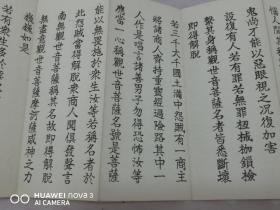 鬼尚不能以惡眼視之況復加害
設復有人若有罪若無罪杻械枷鎖檢
繫其身稱觀世音菩薩名者皆悉斷壞
即得解脫
若三千大千國土滿中怨賊有一商主
將諸商人齎持重寶經過險路其中一
人作是唱言諸善男子勿得恐怖汝等
應當一心稱觀世音菩薩名號是菩薩
能以無畏施於眾生汝等若稱名者於
此怨賊當得解脫眾商人聞俱發聲言
南無觀世音菩薩稱其名故即得解脫
無盡意觀世音菩薩摩訶薩威神之力
巍巍如是
若有眾生多於
HUAWEI nova 3
AI CAMERA